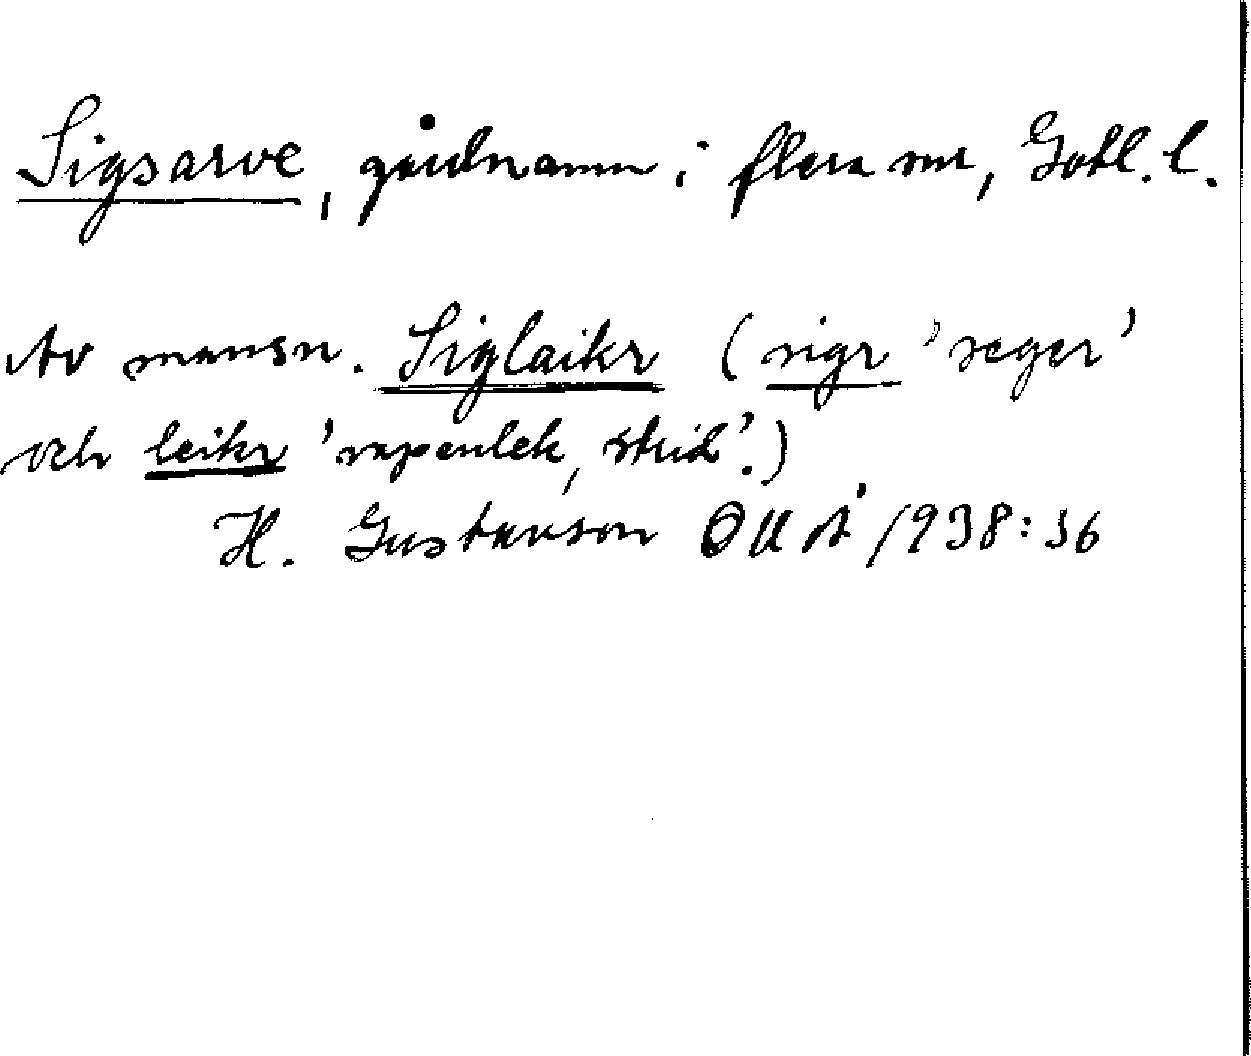 Sigsarve, gårdnamn i flera snr, Gotl. l.
Av mansn. Siglaikr (sigr 'seger'
och leikr 'vapenlek, strid'.)
H. Gustavson OUÅ 1938:36